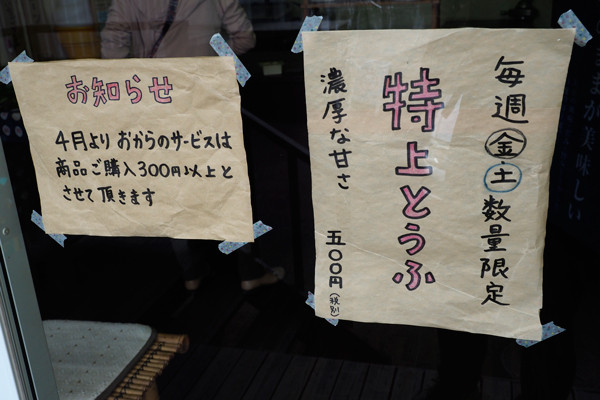 お知らせ
4月より おからのサービスは
商品ご購入300円以上と
させて頂きます
毎週㊎㊏数量限定
特上とうふ
濃厚な甘さ
五〇〇円(税別)
美味しい